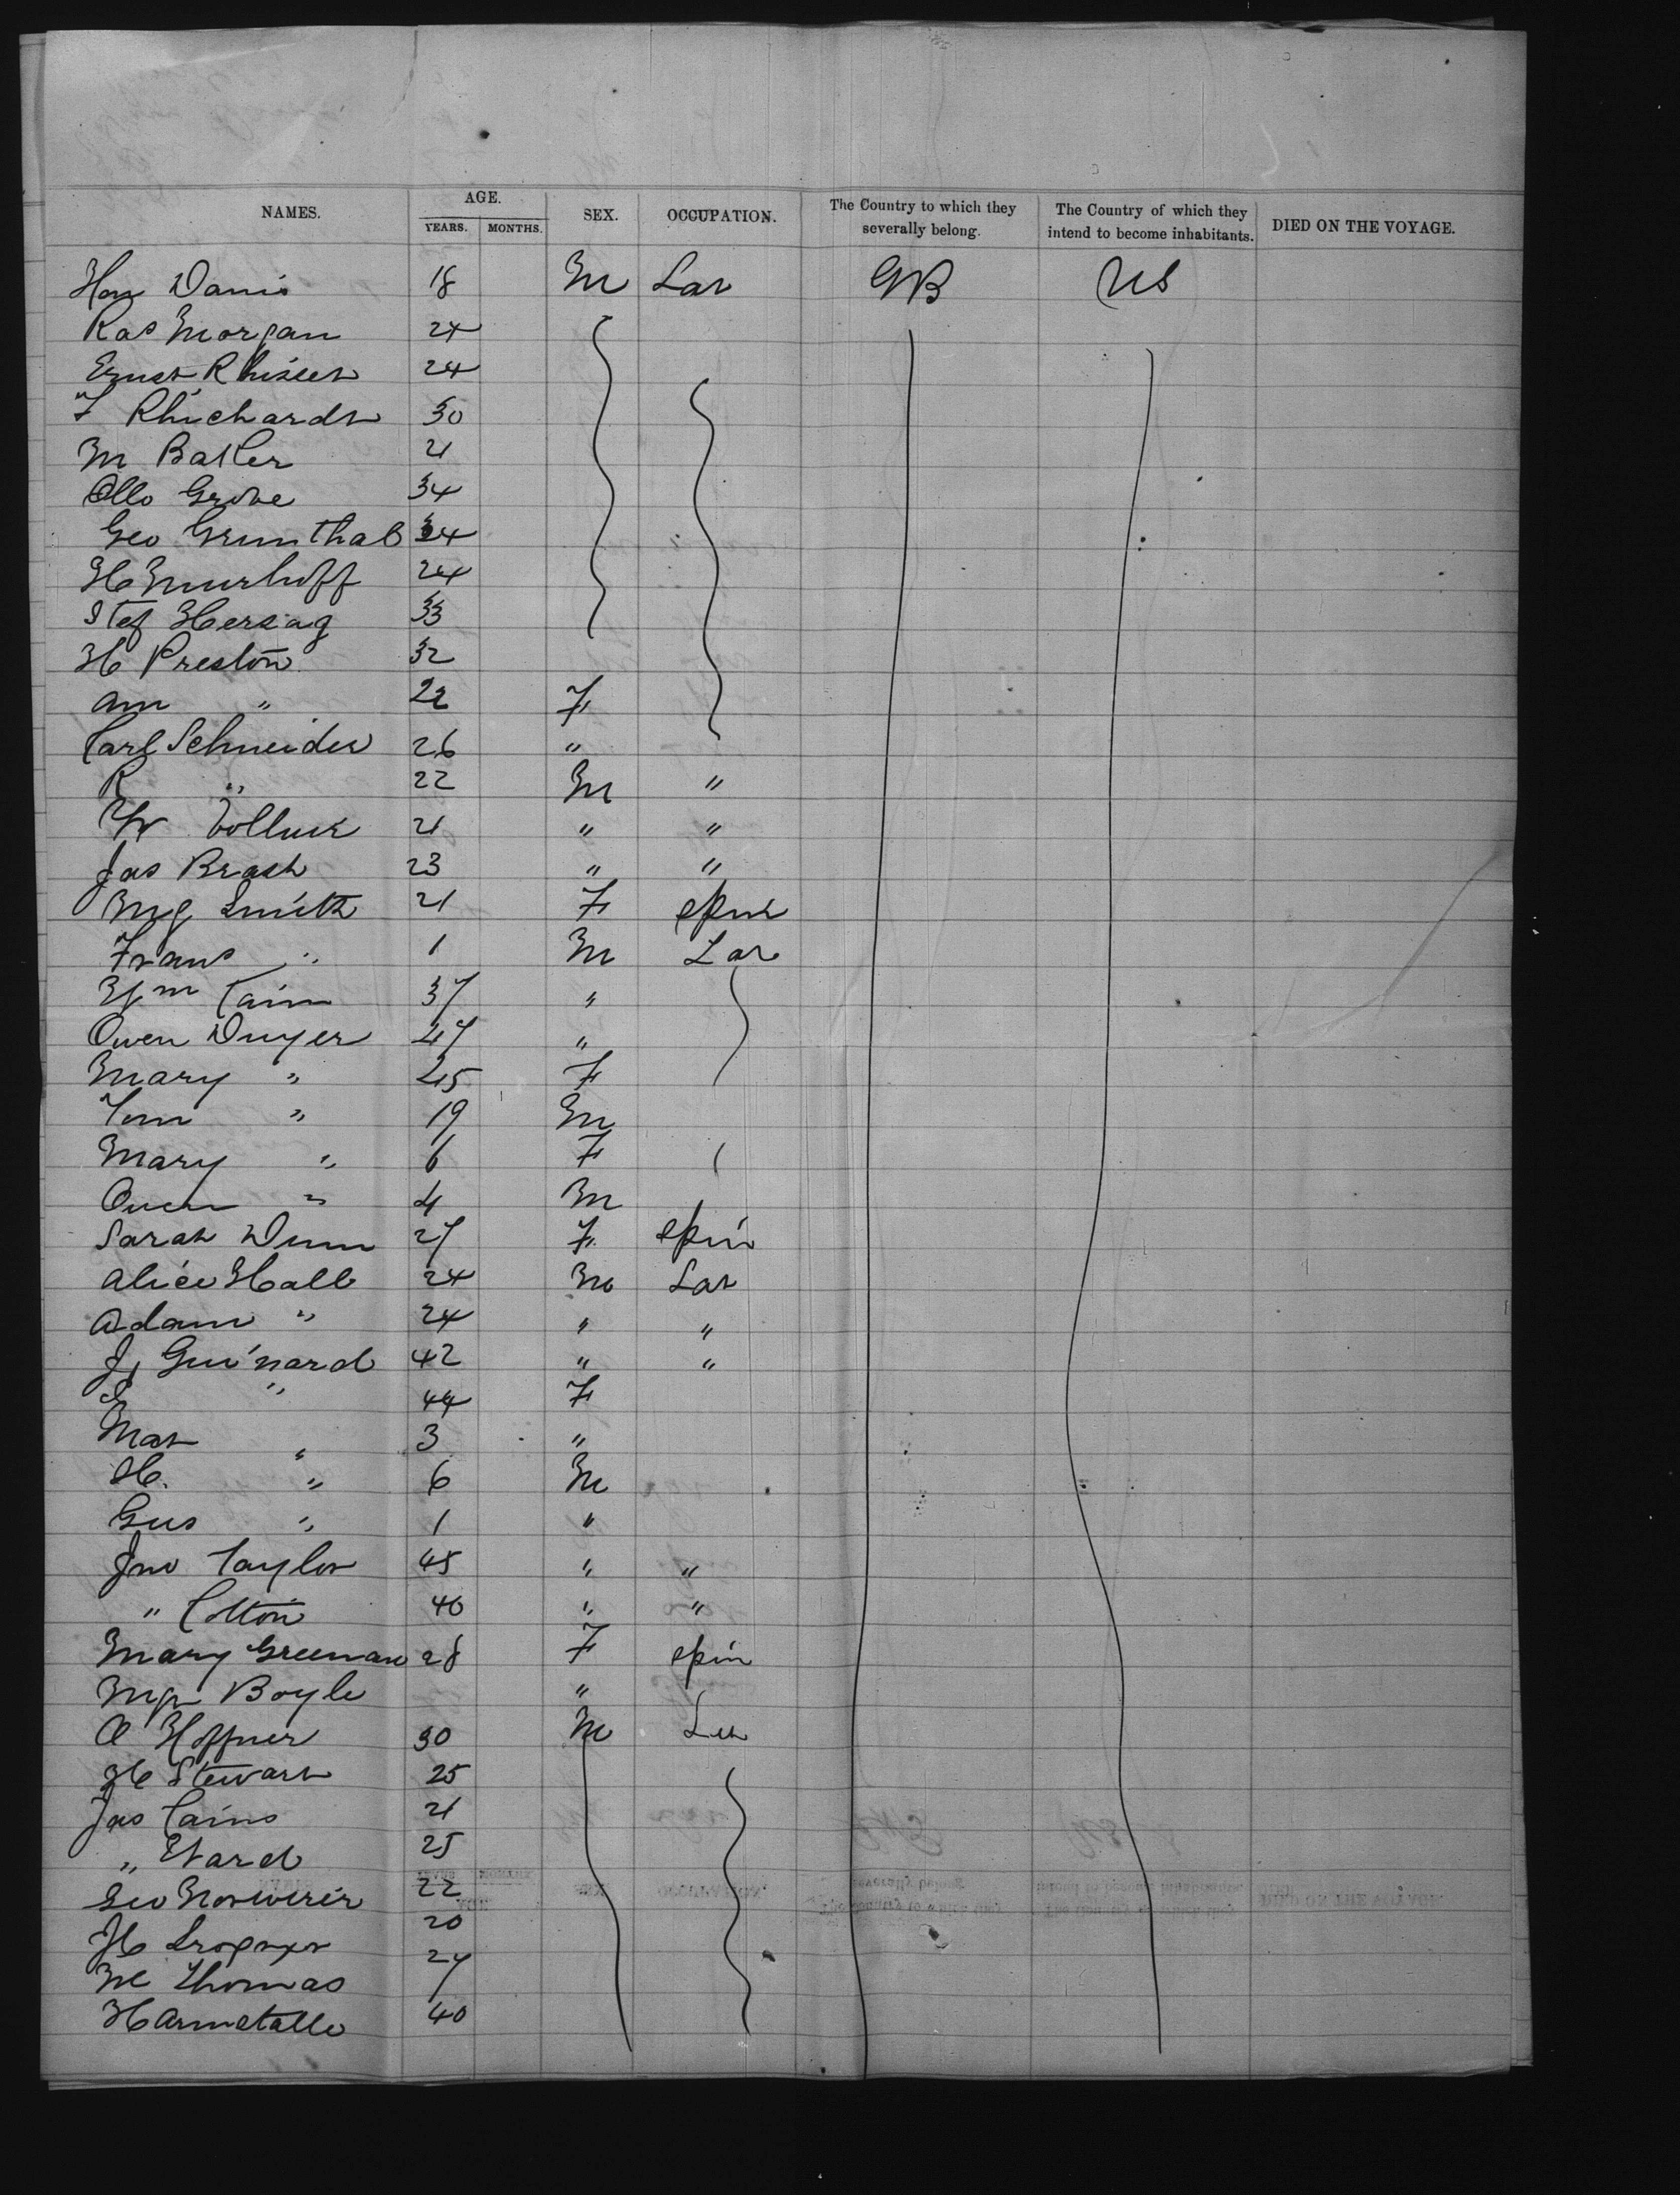 NAMES. AGE. YEARS. MONTHS. SEX. OCCUPATION. The Country to which they severally belong. The Country of which they intend to become inhabitants. DIED ON THE VOYAGE.
18 M Lar GB US
Morgan 24
Ernst 24
F Rhichards 30
M Baker 21
Otto Grobe 34
Geo Grunthal 34
H 24
Stef Herzag 33
H Preston 32
Am " 22 F
Carl Schneider 26 "
R " 22 M "
W 21 " "
Jas Brash 23 " "
Mg Smith 21 F spin
Frans " 1 M Lar
Wm Cain 37 "
Owen Dwyer 47 "
Mary " 45 F
Tom " 19 M
Mary " 6 F
Owen " 4 M
Sarah Dunn 27 F spin
Alice Hall 24 M Lar
Adam " 24 " "
J Guinard 42 " "
" 44 F
Mar " 3 "
H. " 6 M
Gus " 1 "
Jno Taylor 45 " "
" Cotton 40 " "
Mary Greenan 28 F spin
Mgr Boyle "
O Hoffner 30 M
H Stewart 25
Jas Cains 21
" Ward 25
Geo 22
H 20
Thomas 27
40